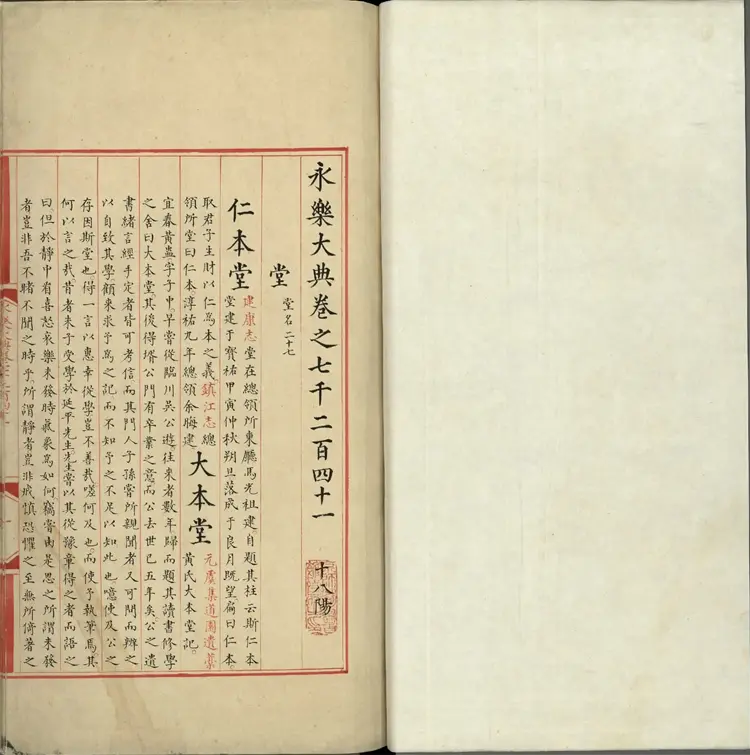 永樂大典卷之七千二百四十一 十八陽
堂 堂名二十七
仁本堂 建康志堂在總領所東廳馬光祖建自題其柱云斯仁本
堂建于寳祐甲寅仲秋朔旦落成于良月既望扁曰仁本
取君子生財以仁爲本之義鎮江志總
領所堂曰仁本淳祐九年總領余晦建
大本堂 元虞集道園遺藁
黃氏大本堂記
宜春黃盅字子中早嘗從臨川吳公遊往來者數年歸而題其讀書修學
之舍曰大本堂其後得壻公門有卒業之意而公去世已五年矣公之遺
書緒言經手定者皆可考信而其門人子孫嘗所親聞者又可問而辨之
以自致其學顧來求予爲之記而不知予之不足以知此也噫使及公之
存因斯堂也得一言以惠幸從學豈不善哉嗟何及也而使予執筆焉其
何以言之哉昔者朱子受學於延平先生先生嘗以其從豫章得之者而語之
曰但於靜中看喜怒哀樂未發時氣象爲如何竊嘗由是思之所謂未發
者豈非吾不睹不聞之時乎所謂靜者豈非戒慎恐懼之至無所倚著之